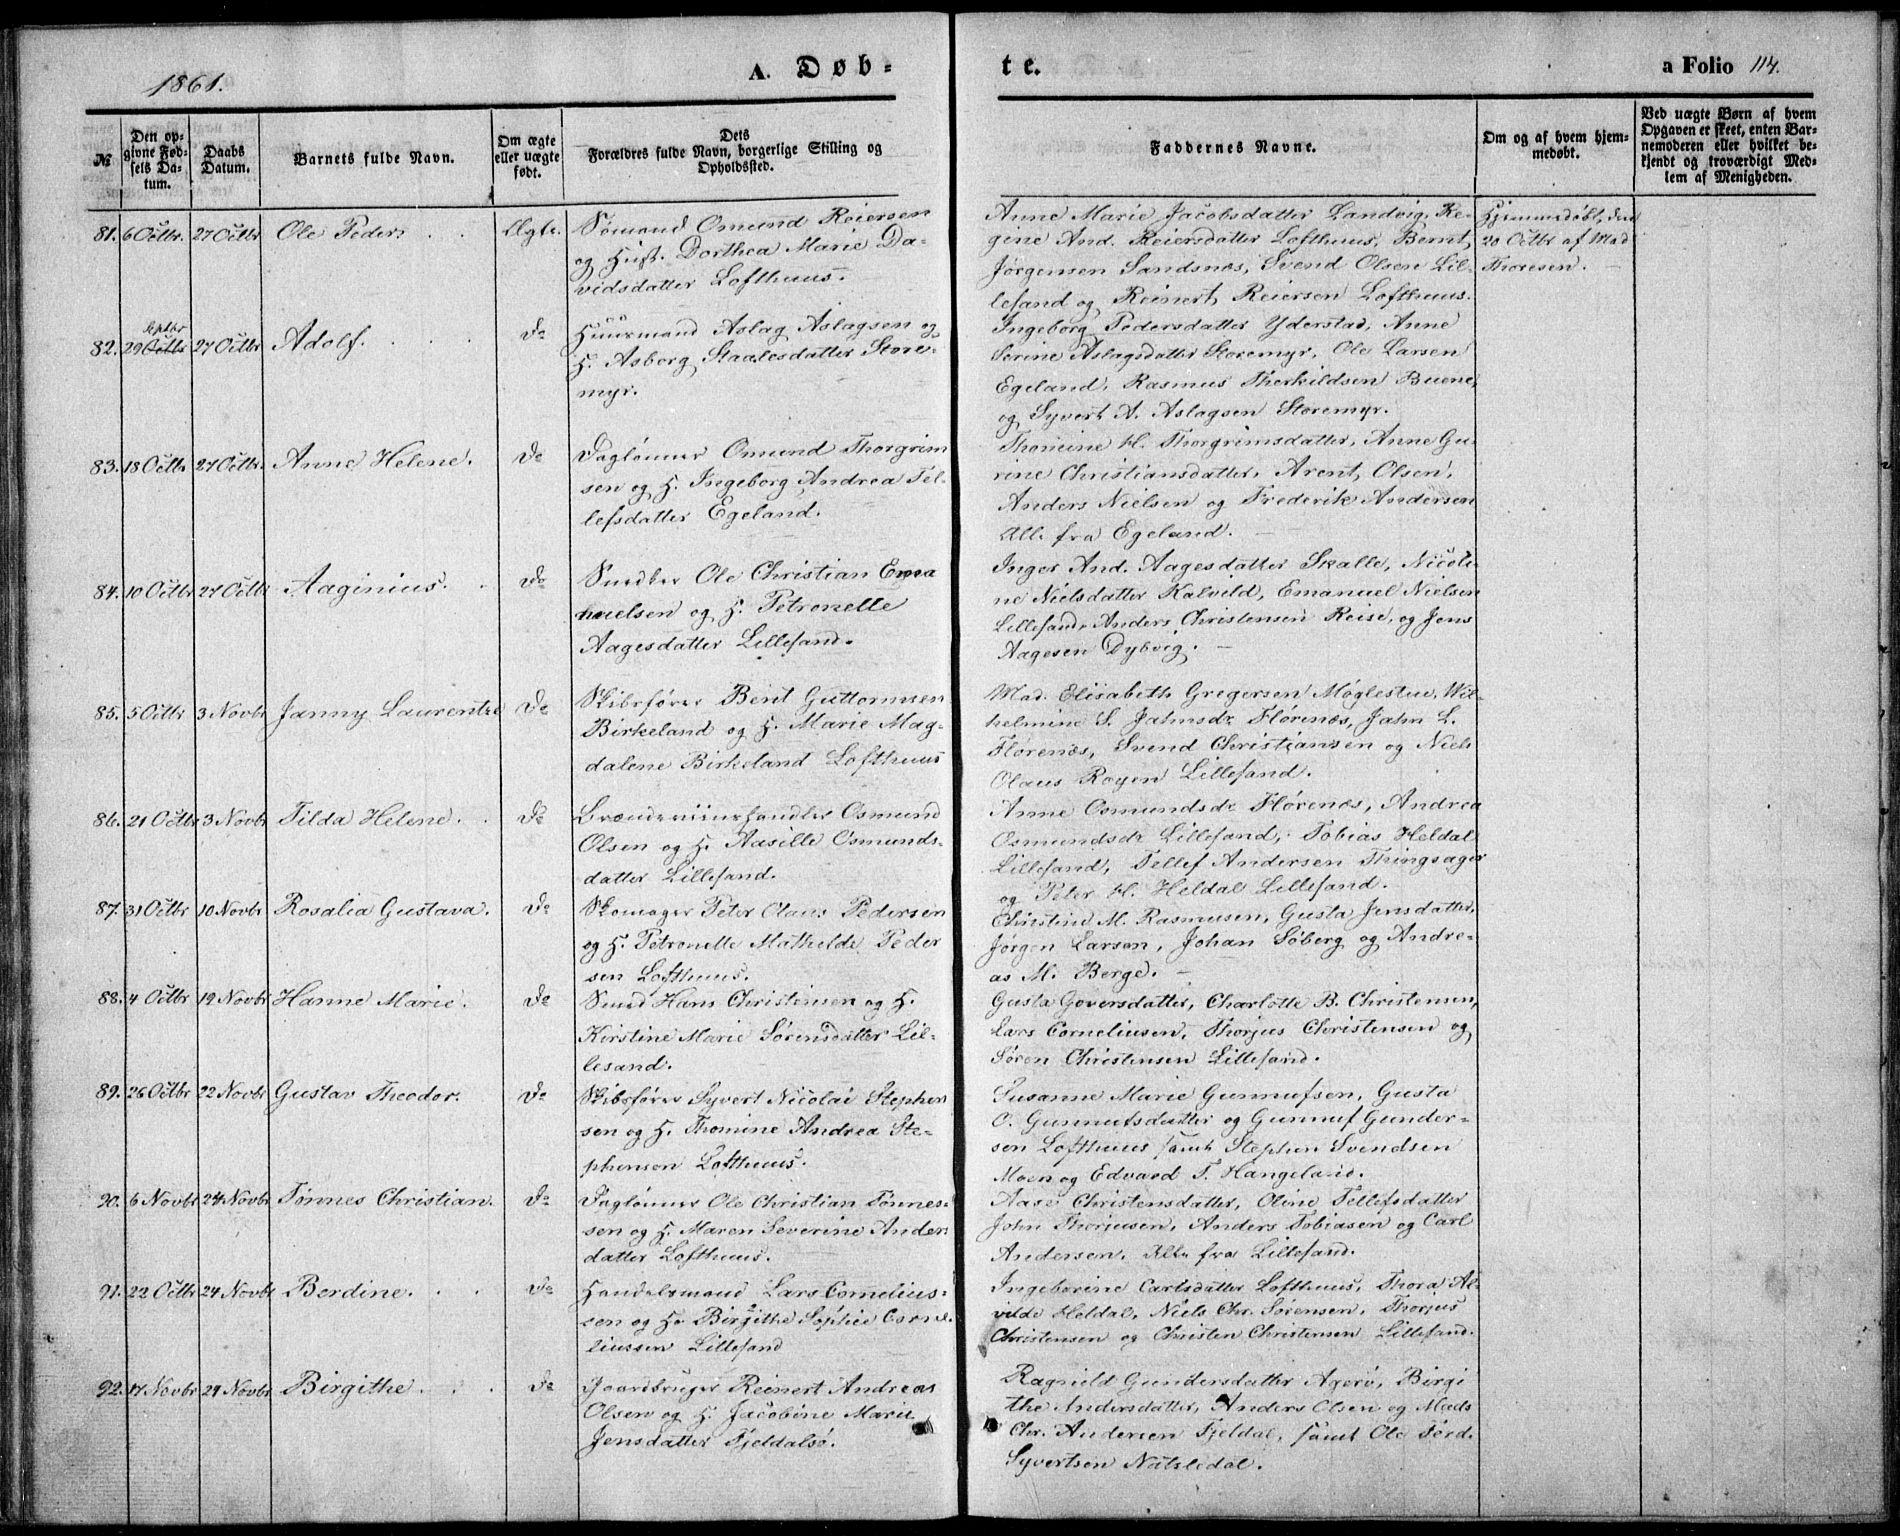 1861.
A. Døb-
te.
a Folio 114.
№
Den op-
givne Fød-
sels Da-
tum.
Daabs
Datum.
Barnets fulde Navn.
Om ægte
eller uægte
født.
Dets
Forældres fulde Navn, borgerlige Stilling og
Opholdssted.
Faddernes Navne.
Om og af hvem hjem-
medøbt.
Ved uægte Børn af hvem
Opgaven er skeet, enten Bar-
nemoderen eller hvilket be-
kjendt og troværdigt Med-
lem af Menigheden.
81. 6 Octbr. 27 Octbr Ole Peder. Ægte.
Sømand Omund Reiersen
og Hust. Dorthea Marie Da-
vidsdatter Lofthuus.
Anne Marie Jacobsdatter Landvig, Re-
gine And. Reiersdatter Lofthuus, Bernt
Jørgensen Sandsnæs, Svend Olsen Lil-
lesand og Reinert Reiersen Lofthuus.
Hjemmedøbt, den
20 Octbr af Mad.
Thoresen.
82. 29 Septbr 27 Octbr Adolf. Do
Huusmand Aslag Aslagsen og
H. Asborg Staalesdatter Store-
myr.
Ingeborg Pedersdatter Yderstad, Anne
Serine Aslagsdatter Storemyr, Ole Larsen
Egeland, Rasmus Therkildsen Buene,
og Syvert A. Aslagsen Storemyr.
83. 18 Octbr 27 Octbr. Anne Helene. Do
Daglønner Omund Thorgrim
sen og H. Ingeborg Andrea Tel-
lefsdatter Egeland.
Thomine H. Thorgrimsdatter, Anne Gu-
rine Christiansdatter, Arent Olsen,
Anders Nielsen og Frederik Andersen
Alle fra Egeland.
84. 10 Octbr 27 Octbr Aaginius. Do
Snedker Ole Christian Ema
nuelsen og H. Petronelle
Aagesdatter Lillesand.
Inger And. Aagesdatter Skalle, Nicoli-
ne Nielsdatter Kalvild, Emanuel Nielsen
Lillesand, Anders Christensen Reise, og Jens
Aagesen Dybvig.
85. 5 Octbr 3 Novbr Janny Laurentze Do
Skibsfører Bent Guttormsen
Birkeland og H. Marie Mag-
dalene Birkeland Lofthuus
Mad. Elisabeth Gregersen Møglestue, Wil-
helmine S. Jahnsdr Flørenæs, Jahn L.
Flørenæs, Svend Christiansen og Niels
Olaus Røyen Lillesand.
86. 21 Octbr 3 Novbr Tilda Helene. Do
Brændeviinshandler Osmund
Olsen og H. Aasille Osmunds-
datter Lillesand.
Anne Osmundsdr Flørenæs, Andrea
Osmundsdr Lillesand, Tobias Heldal
Lillesand, Tellef Andersen Thingsager
og Peter H. Heldal Lillesand.
87. 31 Octbr 10 Novbr. Rosalia Gustava. Do
Skomager Peter Olaus Pedersen
og H. Petronelle Mathilde Peder
sen Lofthuus.
Christine M. Rasmusen, Gusta Jensdatter,
Jørgen Larsen, Johan Søberg og Andre-
as M. Berge.
88. 4 Octbr 19 Novbr Hanne Marie. Do
Smed Hans Christensen og H.
Kirstine Marie Sørensdatter Lil-
lesand.
Gusta Goversdatter, Charlotte B. Christensen,
Lars Corneliusen, Thorjus Christensen og
Søren Christensen Lillesand.
89. 26 Octbr 22 Novbr Gustav Theodor. Do
Skibsfører Syvert Nicolai Stephen
sen og H. Thomine Andrea Ste-
phensen Lofthuus.
Susanne Marie Gunnufsen, Gusta
O. Gunnufsdatter og Gunnuf Gunder-
sen Lofthuus samt Stephen Svendsen
Moen og Edvard T. Hangeland.
90. 6 Novbr 24 Novbr Tønnes Christian. Do
Daglønner Ole Christian Tønnes-
sen og H. Maren Severine Anders
datter Lofthuus.
Aase Christensdatter, Oline Tellefsdatter
John Thorjusen, Anders Tobiasen og Carl
Andersen. Alle fra Lillesand.
91. 22 Octbr 24 Novbr Berdine. Do
Handelsmand Lars Cornelius-
sen og H. Birgithe Sophie Corne-
liussen Lillesand
Ingeborine Carlsdatter Lofthuus, Thora Al-
vilde Heldal, Niels Chr. Sørensen, Thorjus
Christensen og Christen Christensen Lillesand.
92. 17 Novbr 24 Novbr Birgithe. Do
Gaardbruger Reinert Andreas
Olsen og H. Jacobine Marie
Jensdatter Fjeldalsø.
Ragnild Gundersdatter Agerø, Birgi
the Andersdatter, Anders Olsen og Mads
Chr. Andersen Fjeldal, samt Ole Ferd.
Syvertsen Natslidal.